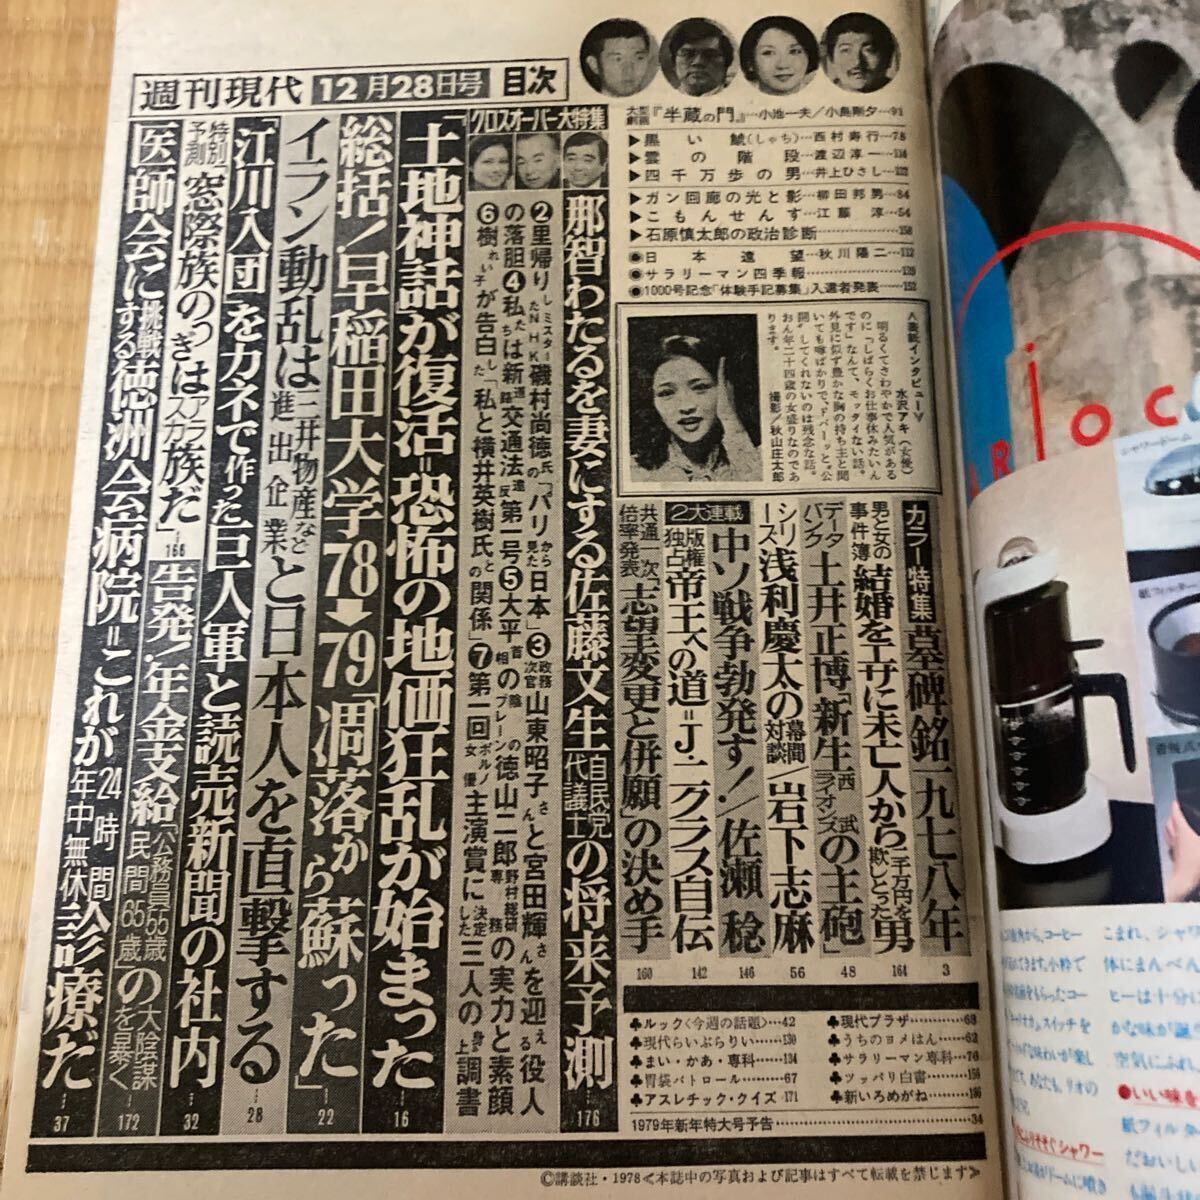 週刊現代 12月28日号 目次
大型劇画『半蔵の門』…小池一夫/小島剛夕…91
▶黒い鯱(しゃち)…西村寿行…78
▶雲の階段…渡辺淳一…116
▶四千万歩の男…井上ひさし…122
▶ガン回廊の光と影…柳田邦男…84
▶こもんせんす…江藤淳…54
▶石原慎太郎の政治診断…158
●日本遠望…秋川陽二…112
●サラリーマン四季報…139
●1000号記念「体験手記募集」入選者発表…152
〈表紙インタビュー〉
水沢アキ(女優)
明るくてさわやかで人気がある
のに「しばらくお仕事休みたいん
です」なんて、モッタイない話。
外見に似ず豊かな胸の持ち主と聞
いても噂ばかりで、ドバーッと〝公
開〟してくれないのは残念な話。
おん年二十四歳の女盛りなのであ
ります。 撮影/秋山庄太郎
クロスオーバー大特集
那智わたるを妻にする佐藤文生自民党代議士の将来予測…176
②里帰りしたミスターNHK磯村尚徳氏「パリから見た日本」③政務次官山東昭子さんと宮田輝さんを迎える役人
の落胆④私たちは新交通法道路通反第一号⑤大平首相の陰のブレーンの徳山二郎野村総研専務の実力と素顔
⑥樹れい子が告白した「私と横井英樹氏との関係」⑦第一回ポルノ女優主演賞に決定した三人の身上調書
「土地神話」が復活=恐怖の地価狂乱が始まった…16
総括!早稲田大学78➡79「凋落から蘇った」…22
イラン動乱は三井物産など進出企業と日本人を直撃する…28
「江川入団」をカネで作った巨人軍と読売新聞の社内…32
特別予測 窓際族のつぎはアラスカ族だ」…166
告発!年金支給「公務員55歳民間65歳」の大陰謀を暴く…172
医師会に挑戦する徳洲会病院=これが24時間年中無休診療だ…37
カラー特集 墓碑銘一九七八年 3
男と女の事件簿 結婚をエサに未亡人から一千万円を欺しとった男 164
データバンク 土井正博「新生西武ライオンズの主砲」 48
シリーズ 浅利慶太の幕間対談/岩下志麻 56
2大連戦
中ソ戦争勃発す!/佐瀬稔 146
版権独占 帝王への道=J・ニクラス自伝 142
共通一次倍率発表「志望変更と併願」の決め手 160
♣ルック〈今週の話題〉…42
♣現代らいぶらりい…130
♣まい・かあ・専科…134
♣胃袋パトロール…67
♣アスレチック・クイズ…171
♣現代プラザ…68
♣うちのヨメはん…62
♣サラリーマン専科…76
♣ツッパリ白書…156
♣新いろめがね…186
1979年新年特大号予告…34
©講談社・1978≪本誌中の写真および記事はすべて転載を禁じます≫
シャワードーム
こまれ、シャワ
体にまんべん
ヒーは十分に
かな味が「誕
空気にふれ、
●いい味を
紙フィルター
だおいしい